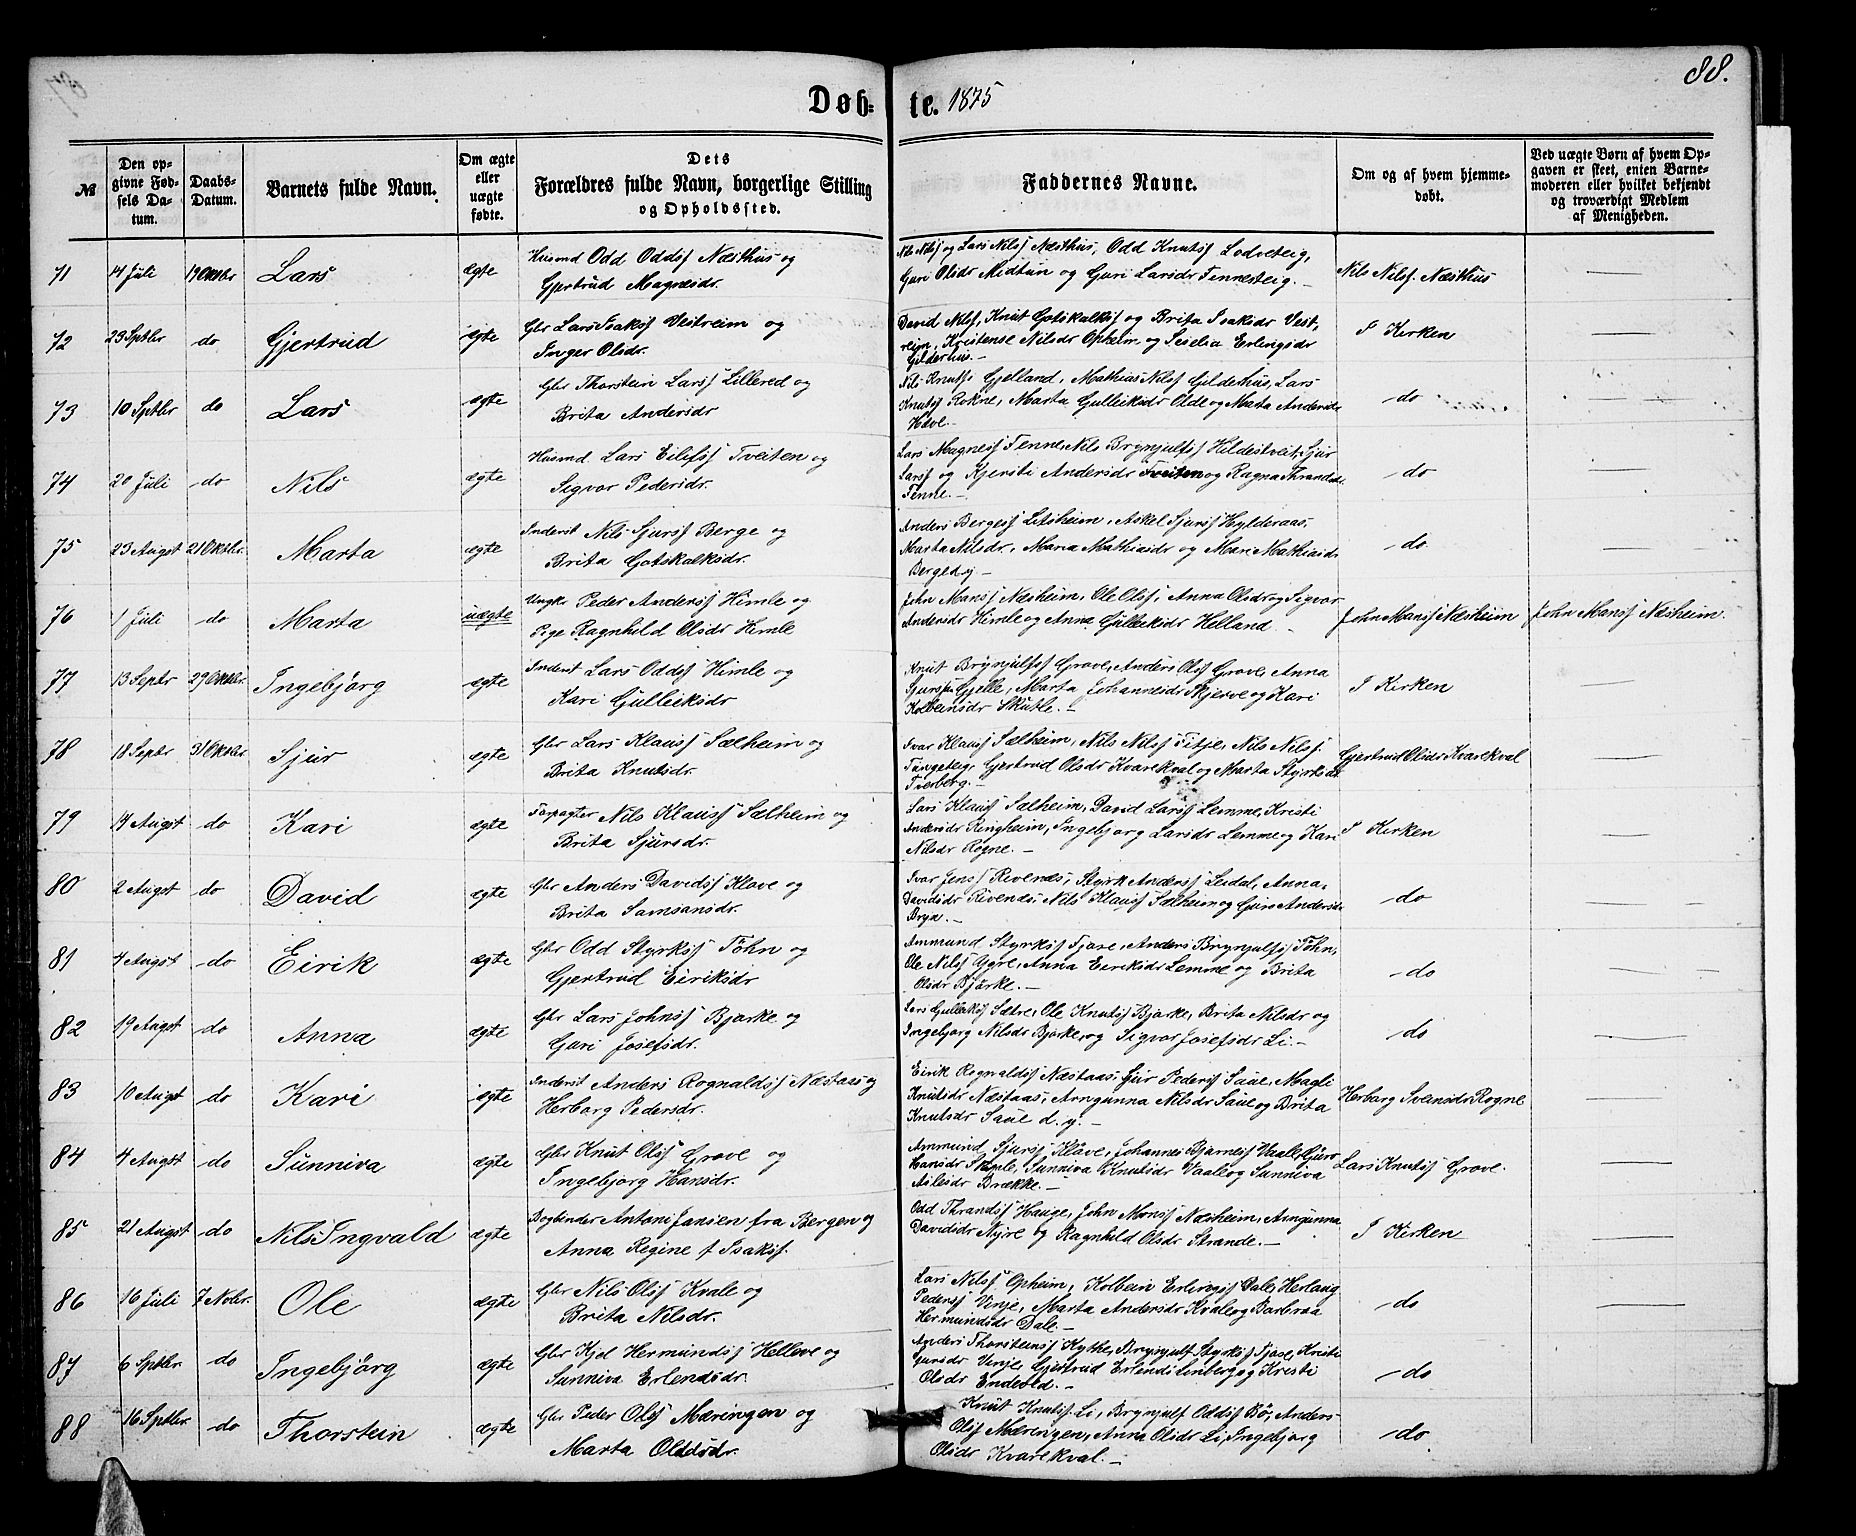 88.
Døb-te. 1875
№
Den opgivne Fødsels Datum.
Daabs-Datum.
Barnets fulde Navn.
Om ægte eller uægte fødte.
Dets Forældres fulde Navn, borgerlige Stilling og Opholdssted.
Faddernes Navne.
Om og af hvem hjemmedøbt.
Ved uægte Børn af hvem Opgaven er skeet, enten Barnemoderen eller hvilket bekjendt og troværdigt Medlem af Menigheden.
71 14 Juli 17 Oktbr Lars ægte Husmd Odd Oddsf Næsthus og
Gjertrud Magnesdr.
Nils Nilsf og Lars Nilsf Næsthus, Odd Knutsf Lodveteig,
Guri Olsdr Midtun og Guri Larsdr Tennesteig. —
Nils Nilsf. Næsthus
72 23 Sptbr do Gjertrud ægte Gbr Lars Isaksf Vestreim og
Inger Olsdr.
David Nilsf, Knut Gotskalksf og Brita Isaksdr Vest,
reim, Kristense Nilsdr Opheim og Seselia Erlingsdr
Gilderhus. —
I Kirken
73 10 Sptbr do Lars ægte Gbr Thorstein Larsf Lillered og
Brita Andersdr
Nils Knutsf Gjelland, Mathias Nilsf Gilderhus, Lars
Knutsf Rokne, Marta Gulleiksdr Olde og Marta Andersdr
Hove. —
do
74 20 Juli do Nils ægte Husmd. Lars Eilifsf Tveiten og
Sigvor Pedersdr.
Lars Magnesf Tenne, Nils Brynjulfsf Hildestveit, Sjur
Larsf og Kjersti Andersdr Tveiten og Ragna Thrandsdr
Tenne. —
do
75 23 Augst 21 Oktbr. Marta ægte Inderst Nils Sjursf Berge og
Brita Gotskalksdr.
Anders Bergesf Litsheim, Askel Sjursf Hylderaas,
Marta Nilsdr., Maria Mathiasdr og Mari Mathiasdr
Berge d.y. —
do
76 1 Juli do Marta uægte Ungk. Peder Andersf Himle og
Pige Ragnhild Olsdr Himle
John Mansf Næsheim, Ole Olsf, Anna Olsdr og Sigvor
Andersdr Himle og Anna Gulleiksdr Helland —
John Mansf Næsheim John Mansf Næsheim.
77 13 Septr 29 Oktbr. Ingebjørg ægte Inderst Lars Oddsf Himle og
Kari Gulleiksdr
Knut Brynjulfsf Grove, Anders Olsf Grove, Anna
Sjursdr Gjelle, Marta Johannesdr Skjerve og Kari
Kolbeinsdr Skutle. —
I Kirken
78 18 Septr 31 Oktbr. Sjur ægte Gbr Lars Klausf Sælheim og
Brita Knutsdr.
Ivar Klausf Sælheim, Nils Nilsf Titje, Nils Nilsf.
Tungeteig, Gjertrud Olsdr Kvarekval og Marta Styrksdr
Tverberg. —
Gjertrud Olsdr Kvarekval
79 14 Augst do Kari ægte Forpagter Nils Klausf Sælheim og
Brita Sjursdr.
Lars Klausf Sælheim, David Larsf Lemme, Kristi
Andersdr Ringheim, Ingebjørg Larsdr Lemme og Kari
Nilsdr Rogne. —
I Kirken
80 2 Augst do David ægte Gbr Anders Davidsf Klove og
Brita Samsonsdr.
Ivar Jensf Rivenes, Styrk Andersf Seidal, Anna
Davidsdr Rivenes, Nils Klausf Sælheim og Guro Andersdr
Bryn. —
do
81 4 Augst do Eirik ægte Gbr Odd Styrksf Føhn og
Gjertrud Eiriksdr
Ammund Styrksf Tjose, Anders Brynjulfsf Føhn,
Ole Nilsf Ygre, Anna Eiriksdr Lemme og Brita
Olsdr Bjørke. —
do
82 19 Augst do Anna ægte Gbr Lars Johnsf Bjørke og
Guri Josefsdr.
Lars Gulleiksf Sætre, Ole Knutsf Bjørke, Brita Nilsdr og
Ingebjørg Nilsdr Bjørke og Sigvor Josefsdr Li. —
do
83 10 Augst do Kari ægte Inderst Anders Rognaldsf Næstaas og
Herborg Pedersdr.
Eirik Rognaldsf Næstaas, Sjur Pedersf Saue, Magli
Knutsdr Næstaas, Arngunna Nilsdr Saue og Brita
Knutsdr Saue d. y. —
Herborg Svensdr Rogne
84 4 Augst do Sunniva ægte Gbr Knut Olsf Grove og
Ingebjørg Hansdr.
Ammund Sjursf Kløve, Johannes Bjarnesf Vaale, Guro
Hansdr, Sunniva Knutsdr Vaale og Sunniva
Brække. —
Lars Knutsf Grove.
85 21 Augst do Nils Ingvald ægte Bogbinder Antoni Jansen fra Bergen og
Anna Regine f Isaksf.
Odd Thrandsf Hauge, John Monsf Næsheim, Arngunna
Davidsdr Nyre og Ragnhild Olsdr Strande. —
I Kirken
86 16 Juli 7 Nobr. Ole ægte Gbr Nils Olsf Kvale og
Brita Nilsdr.
Lars Nilsf Opheim, Kolbein Erlingsf Dale, Herlaug
Pedersf Vinje, Marta Andersdr Kvale og Barbroa
Hermundsdr Dale. —
do
87 6 Sptbr. do Ingebjørg ægte Gbr Kjel Hermundsf Helleve og
Sunniva Erlendsdr.
Anders Thorsteinsf Kythe, Brynjulf Styrksf Tjose, Kristi
Gunsdr Vinje, Gjertrud Erlendsdr og Kristi
Olsdr Endeved. —
do
88 16 Sptbr. do Thorstein ægte Gbr Peder Olsf Mæringen og
Marta Olsdr.
Knut Knutsf Li, Brynjulf Oddsf Bø, Anders
Olsf Mæringen, Anna Olsdr Li, Ingebjørg
Olsdr Kvarekval. —
do